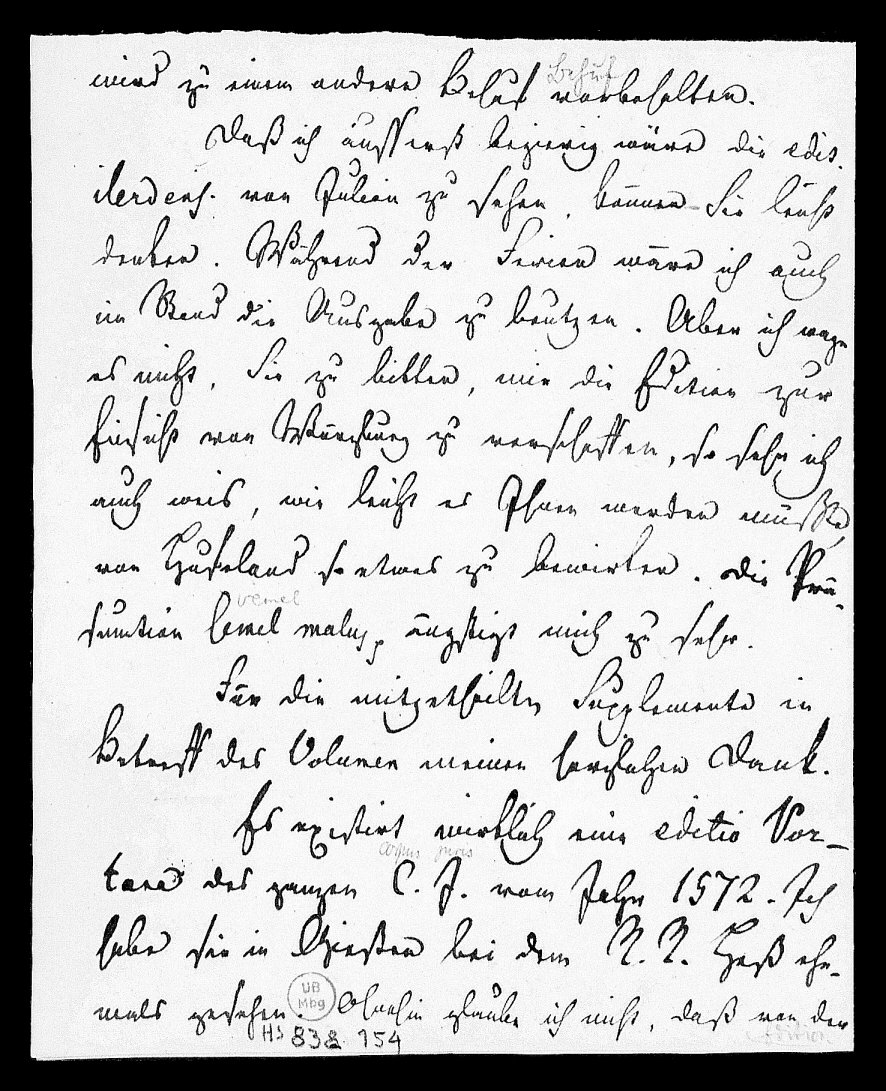 wird zu einem andern Behuf vorbehalten.
Behuf
Daß ich äusserst begierig wäre die edit.
ilerdens. von Julien zu sehen, können Sie leicht
denken. Während der Ferien wäre ich auch
im Stand die Ausgabe zu benutzen. Aber ich wage
es nicht, Sie zu bitten, mir die Edition zur
Einsicht von Würzburg zu verschaffen, so sehr ich
auch weis, wie leicht es Ihnen werden müßte,
von Hufeland so etwas zu bewirken. Die Prä-
semel
sumtion semel malus p ängstigt mich zu sehr.
Für die mitgetheilten Supplemente in
Betreff des Volumen meinen herzlichen Dank.
Es existirt wirklich eine editio Vor-
corpus juris
tana des ganzen C. J. vom Jahr 1572. Ich
habe sie in Giesten bei dem R. R. Heß ehe-
mals gesehen. Ohnehin glaube ich nicht, daß von der
Edition
UB
Mbg
Hs 838 154